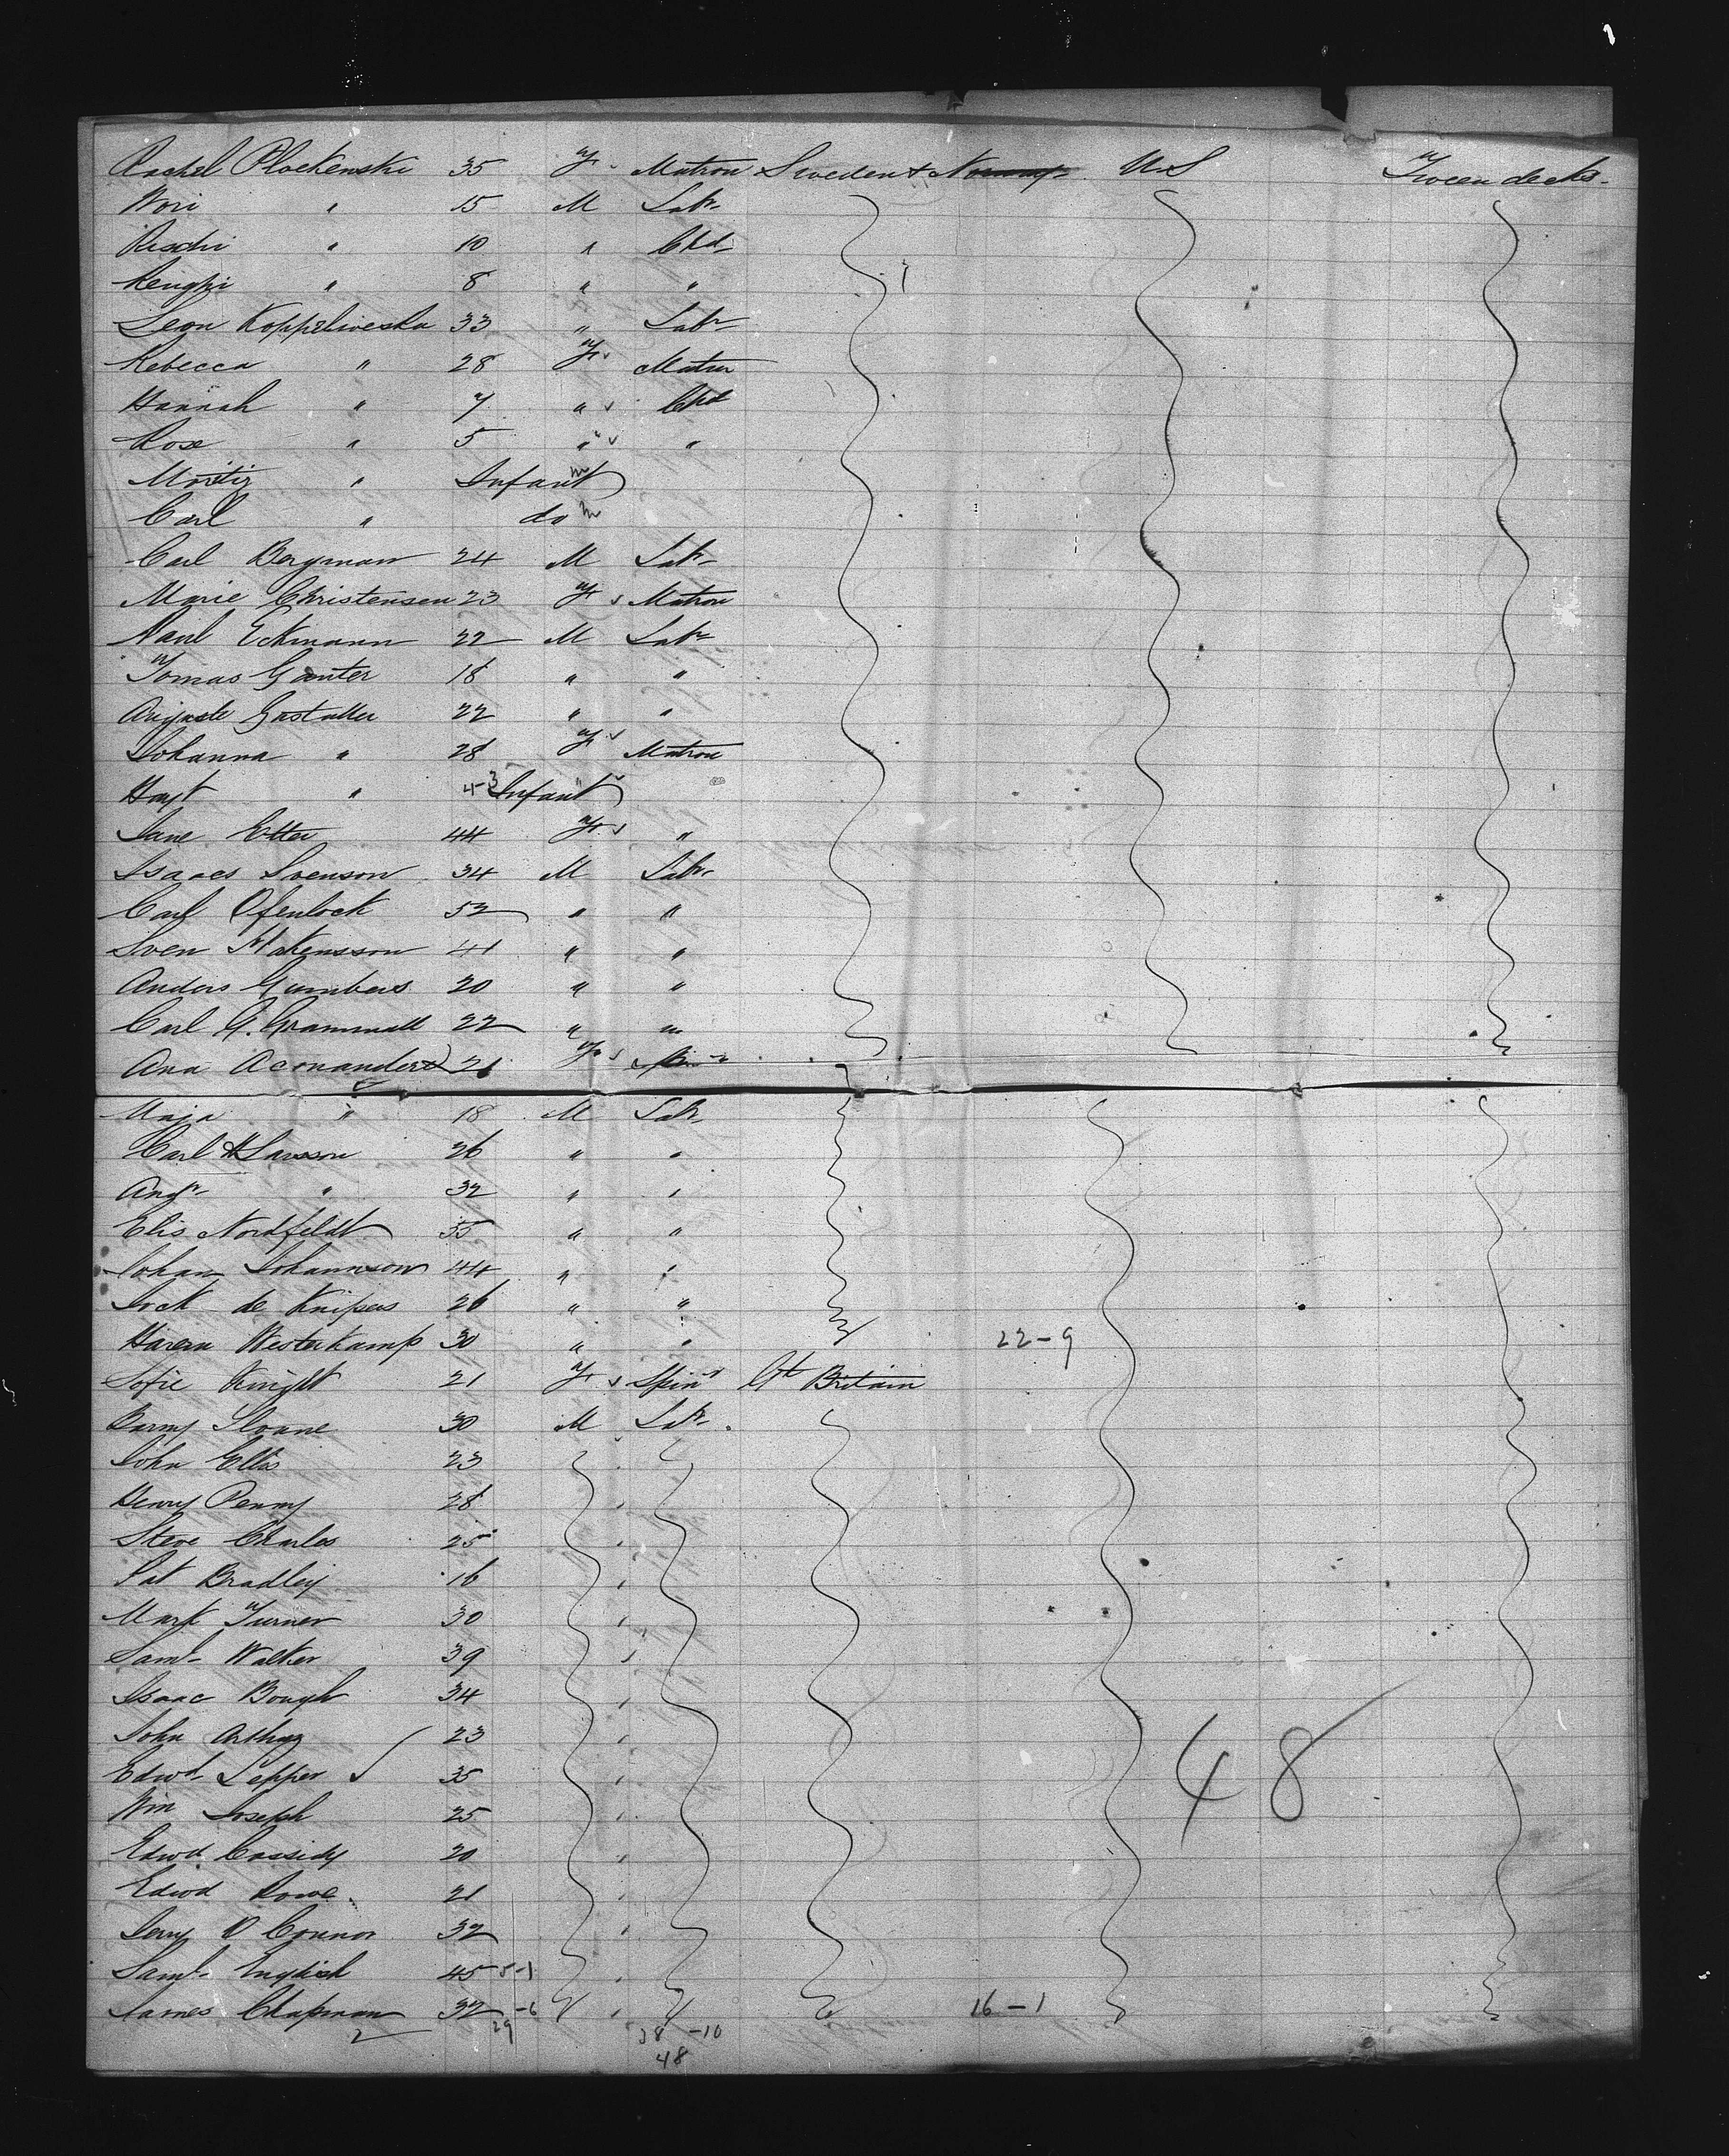 Rachel Plockenski 35 F Matron Sweden & Norway U.S Tween decks
Wori " 15 M Labr
Reschi " 10 " Chd
" 8 " "
Leon Koppeliveska 33 " Labr
Rebecca " 28 F Matron
Hannah " 7 " Chd
Rose " 5 " "
Moritz " Infant m
Carl " do m
Carl Bergman 24 M Labr
Marie Christensen 23 F Matron
Eckmann 22 M Labr
Tomas Ganter 18 " "
Auguste Gastaller 22 " "
Johanna " 28 F Matron
" Infant
Jane Etter 44 F "
Isaacs Svenson 34 M Labr
Carl Ofenlock 52 " "
Sven 41 " "
Anders 20 " "
Carl G. Grammall 22 " "
Ana 21 F
Maja " 18 M Labr
Carl Larsson 26 " "
Augt " 32 " "
Elis Nordfeldt 35 " "
Johan Johannson 44 " "
de Knipers 26 " "
Westerkamp 30 " " 22-9
Sofie Knight 21 F Spinr Gt Britain
Barny Sloane 30 M Labr
John Ellis 23
Henry Penny 28
Steve Charles 25
Pat Bradley 16
Mark Turner 30
Saml Walker 39
Isaac Bough 34
John Arthur 23
Edwd Lepper 35
Wm Joseph 25 48
Edwd Cassidy 20
Edwd Rowe 21
Jerry O Connor 32
Saml English 45 5-1
James Chapman 32 -6 16-1
2 29 38-10
48